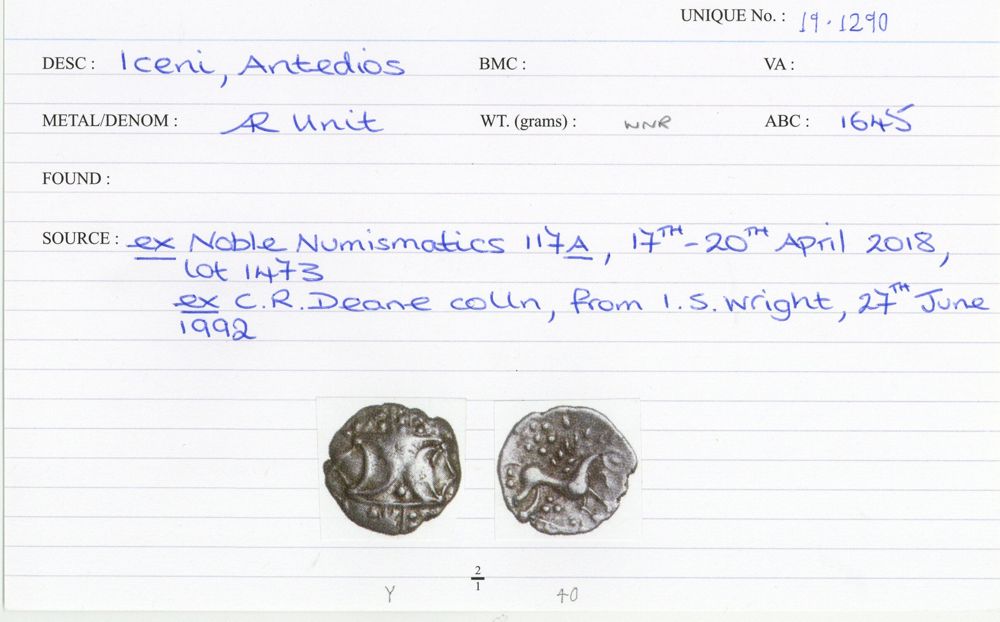 UNIQUE No. : 19.1290
DESC : Iceni, Antedios BMC : VA :
METAL/DENOM : AR Unit WT. (grams) : WNR ABC : 1645
FOUND :
SOURCE : ex Noble Numismatics 117A, 17TH-20TH April 2018,
lot 1473
ex C.R. Deane colln, from I.S. Wright, 27TH June
1992
2
1
Y 40